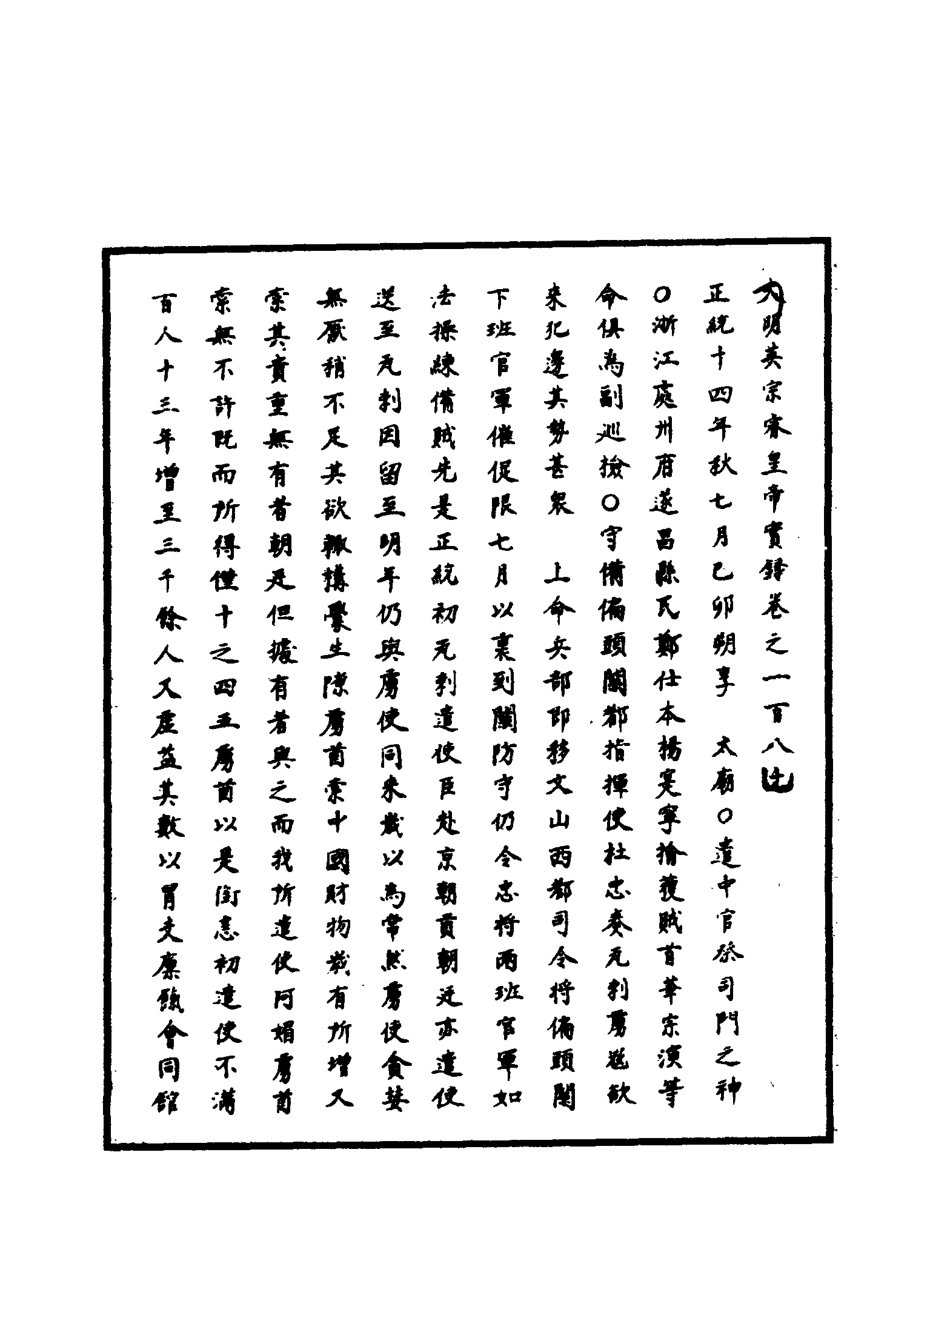 大明英宗睿皇帝實錄卷之一百八十
正統十四年秋七月己卯朔享　太廟○遣中官祭司門之神
○浙江處州府遂昌縣民鄭仕本楊寔寧擒獲賊首華宗演等
命俱為副巡撿○守備偏頭關都指揮使杜忠奏瓦剌虜寇欲
來犯邊其勢甚衆　上命兵部即移文山西都司令將偏頭關
下班官軍催促限七月以裏到關防守仍令忠將兩班官軍如
法操練備賊先是正統初瓦剌遣使臣赴京朝貢朝廷亦遣使
送至瓦剌因留至明年仍與虜使同來歲以為常然虜使貪婪
無厭稍不足其欲輒搆釁生隙虜酋索中國財物歲有所增又
索其貴重無有者朝廷但據有者與之而我所遣使阿媚虜酋
索無不許既而所得僅十之四五虜酋以是銜恚初遣使不滿
百人十三年增至三千餘人又虛益其數以冒支廩餼會同館